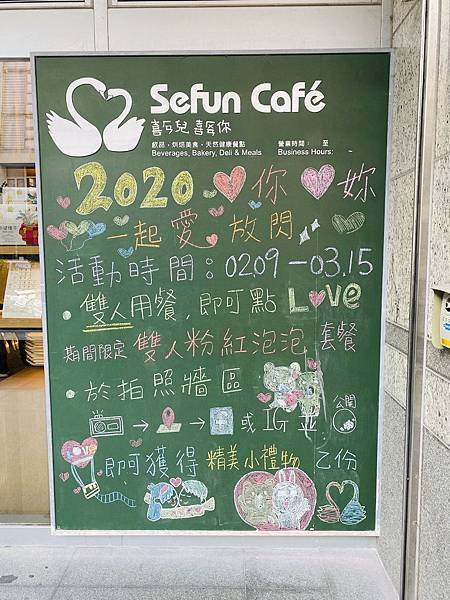 Sefun Café
喜ㄋㄞ兒 喜ㄋㄞ你
飲品、烘焙美食、天然健康餐點
Beverages, Bakery, Deli & Meals
營業時間: 至
Business Hours: -
2020 你 妳
一起愛放閃
活動時間:02.09-03.15
·雙人用餐,即可點 Love
期間限定 雙人粉紅泡泡 套餐
·於拍照牆區
→ → 或 IG 並 公開
即可獲得 精美小禮物 乙份